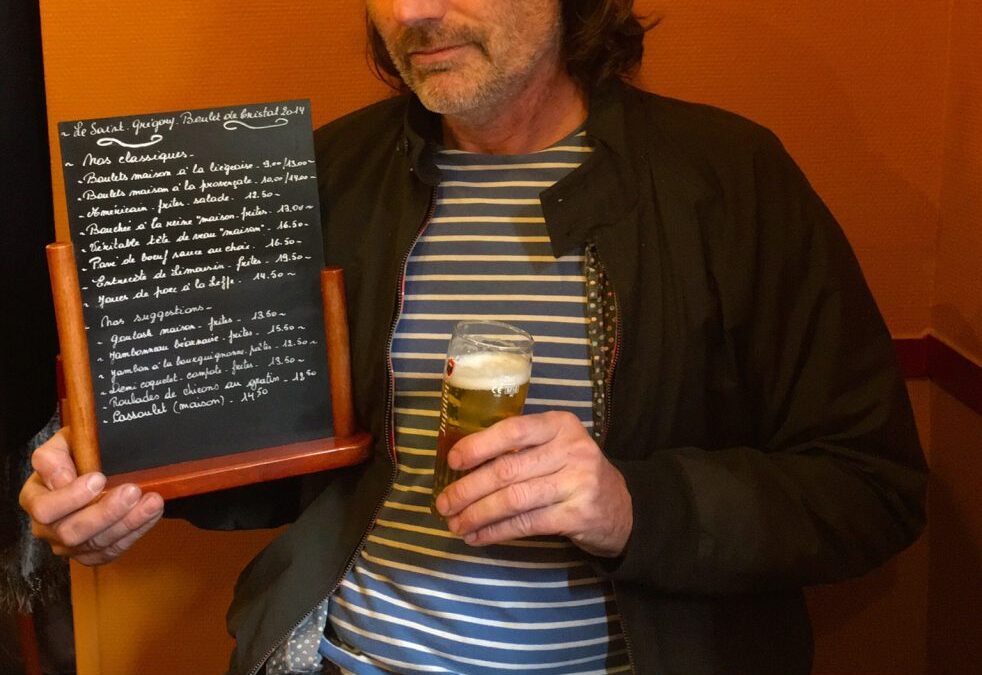 ~ Le Saint-Grégory. Boulet de Cristal 2014
~ Nos classiques -
- Boulets maison à la liégeoise - 9.00/13.00 ~
- Boulets maison à la provençale - 10.00/14.00 -
- Américain - frites - salade - 12.50 ~
- Bouchée à la reine "maison - frites - 13.00 ~
- Véritable tête de veau "maison" - 16.50 -
- Pavé de boeuf sauce au choix - 16.50 ~
- Entrecôte de Limousin - frites - 19.50 ~
- Joues de porc à la Leffe - 14.50 ~
Nos suggestions -
- goulash maison - frites - 13.50 ~
- Jambonneau béarnaise - frites - 15.50 ~
- Jambon à la bourguignonne, frites - 12.50 ~
- Demi coquelet - compote - frites - 13.50 ~
- Roulades de chicons au gratin - 12.50
- Cassoulet (maison) - 14.50